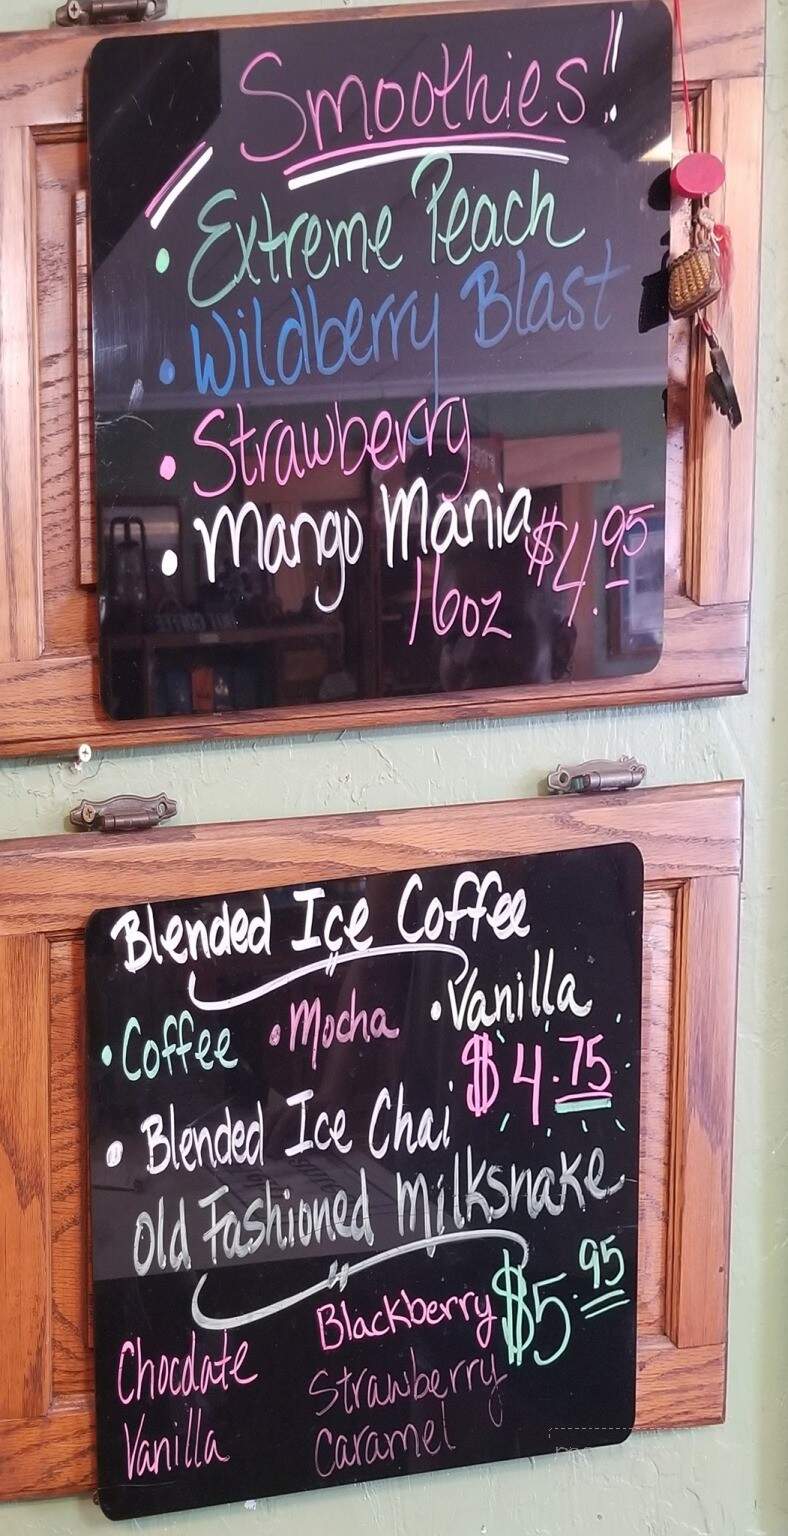 Smoothies!!
• Extreme Peach
• Wildberry Blast
• Strawberry
• Mango Mania $4.95
16oz
Blended Ice Coffee
• Coffee • Mocha • Vanilla
$4.75
• Blended Ice Chai
Old Fashioned Milkshake
$5.95
Chocolate Blackberry
Vanilla Strawberry
Caramel